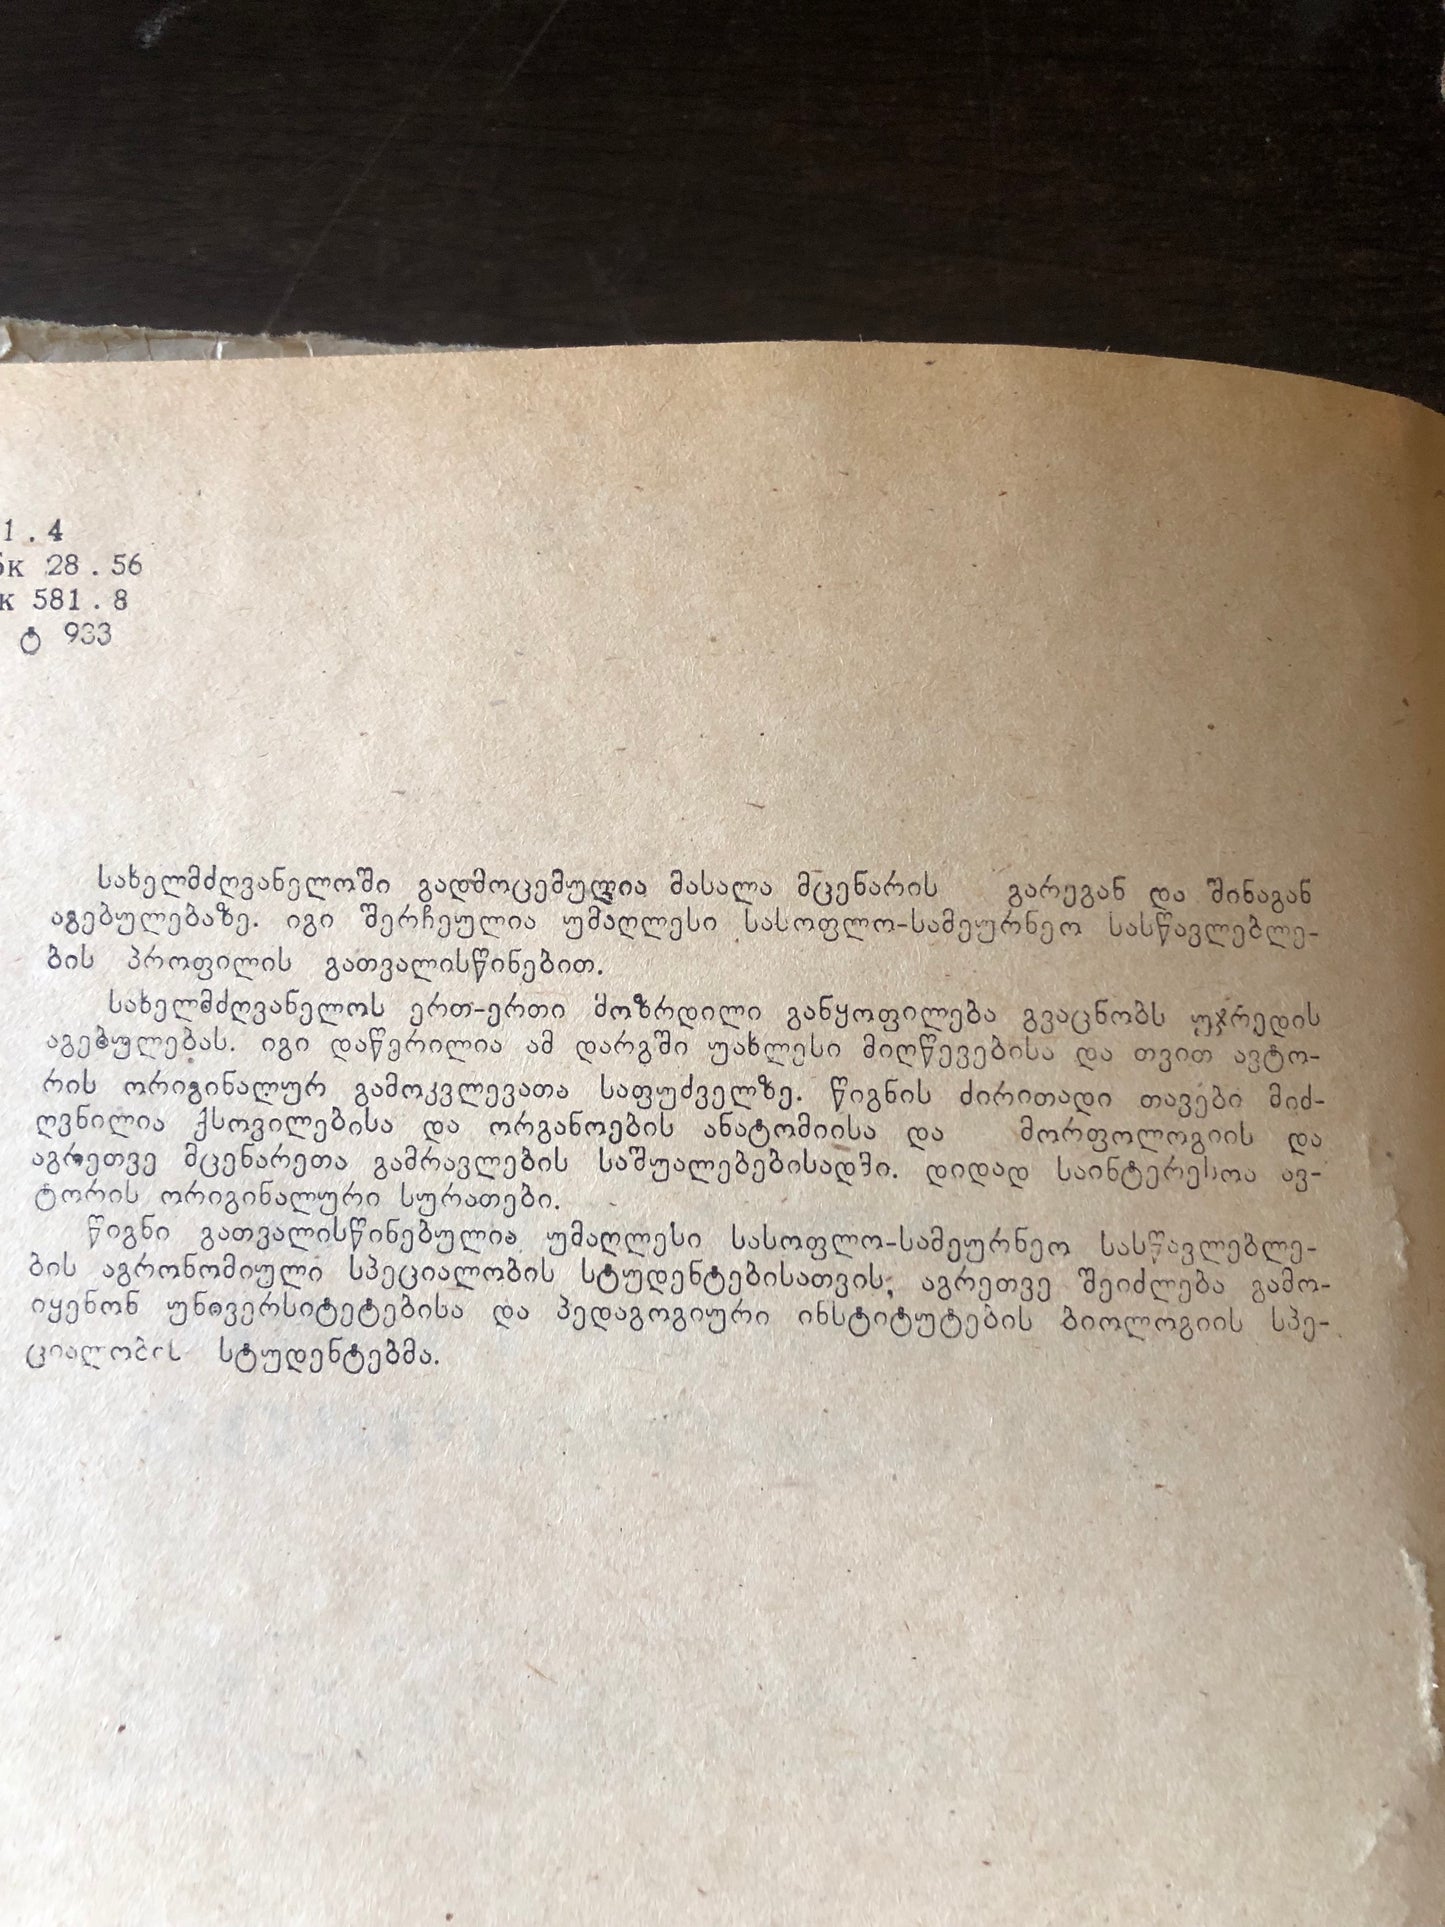 1.4
бк 28.56
к 581.8
ტ 933
სახელმძღვანელოში გადმოცემულია მასალა მცენარის გარეგან და შინაგან
აგებულებაზე. იგი შერჩეულია უმაღლესი სასოფლო-სამეურნეო სასწავლებლე-
ბის პროფილის გათვალისწინებით.
სახელმძღვანელოს ერთ-ერთი მოზრდილი განყოფილება გვაცნობს უჯრედის
აგებულებას. იგი დაწერილია ამ დარგში უახლესი მიღწევებისა და თვით ავტო-
რის ორიგინალურ გამოკვლევათა საფუძველზე. წიგნის ძირითადი თავები მიძ-
ღვნილია ქსოვილებისა და ორგანოების ანატომიისა და მორფოლოგიის და
აგრეთვე მცენარეთა გამრავლების საშუალებებისადმი. დიდად საინტერესოა ავ-
ტორის ორიგინალური სურათები.
წიგნი გათვალისწინებულია უმაღლესი სასოფლო-სამეურნეო სასწავლებლე-
ბის აგრონომიული სპეციალობის სტუდენტებისათვის, აგრეთვე შეიძლება გამო-
იყენონ უნივერსიტეტებისა და პედაგოგიური ინსტიტუტების ბიოლოგიის სპე-
ციალობის სტუდენტებმა.